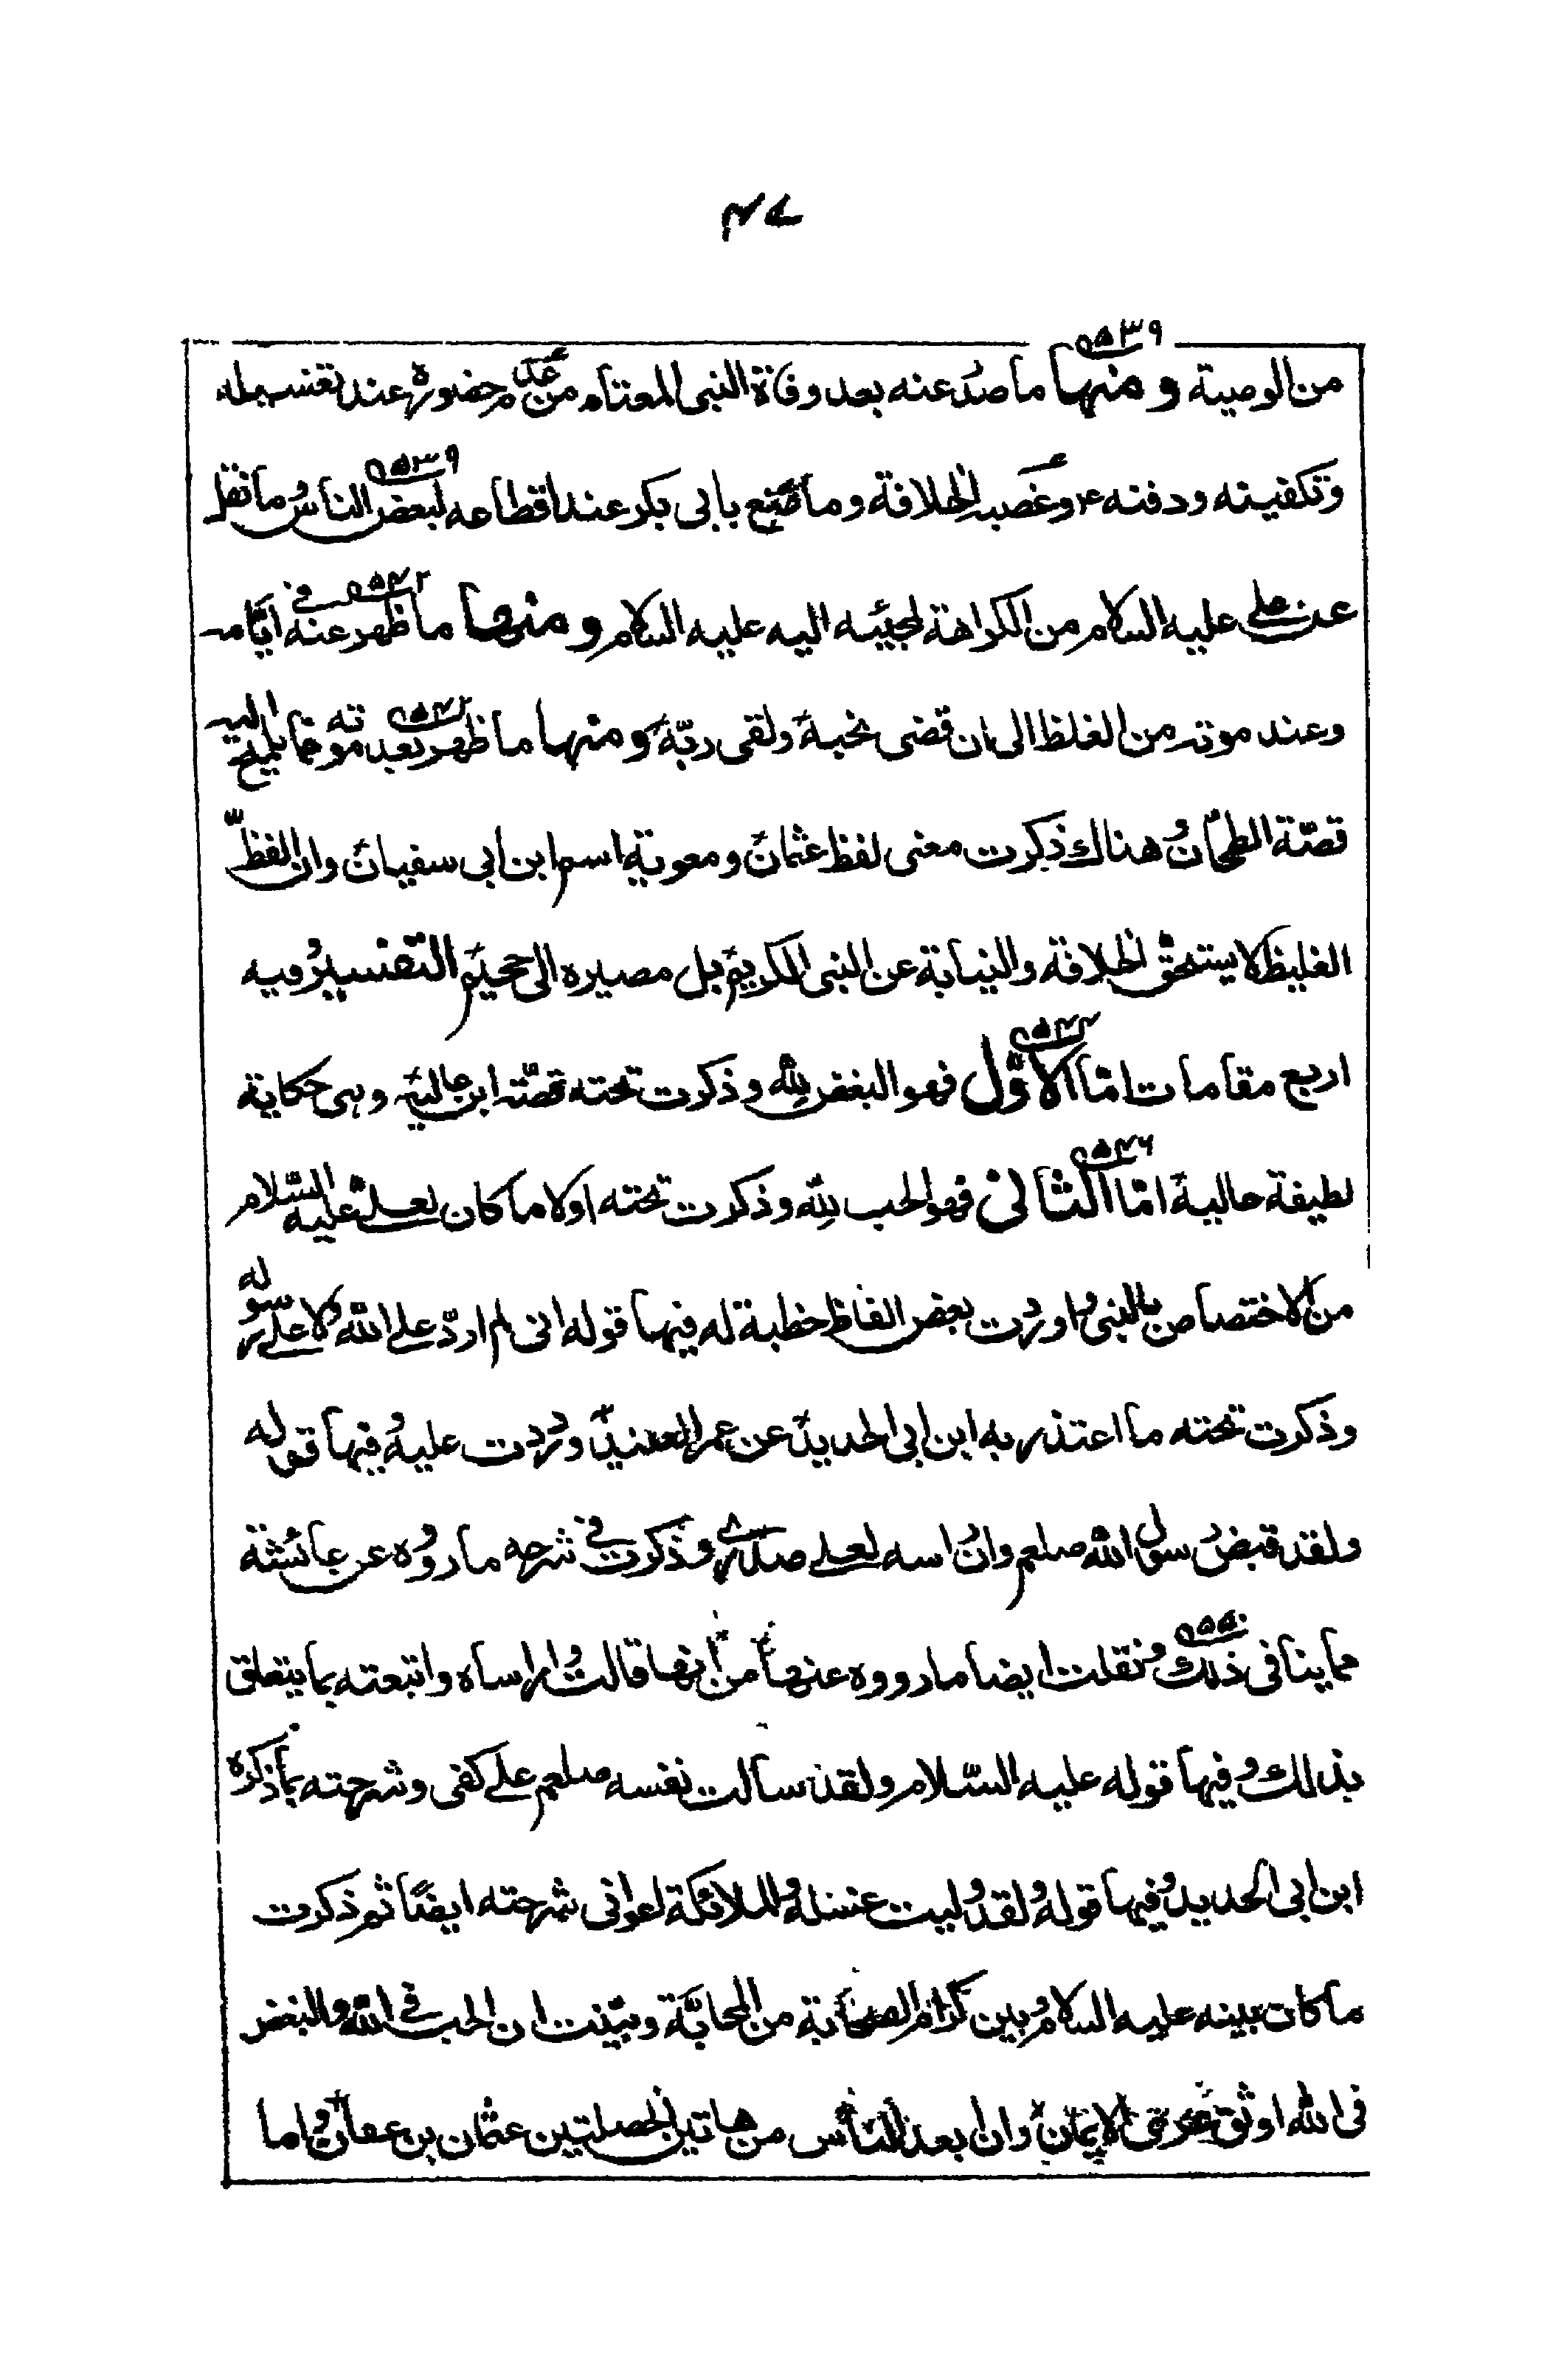 ٤٧
٥٣٩
من الوصية ومنها ما صدر عنه بعد وفاة النبي المعتام من عدم حضوره عند تغسيله
٥٣٩
وتكفينه ودفنه وغصبه الخلافة وما صنع بابى بكر عند اقطاعه لبعض الناس وما نقل
٥٤٢
عن على عليه السلام من الكراهة لمجيئه اليه عليه السلام ومنها ما ظهر عنه فى ايامه
٥٤٢
وعند موته من الغلظ الى ان قضى نحبه ولقى ربه ومنها ما ظهر بعد موته مما يلمح اليه
قصّة الطحان وهناك ذكرت معنى لفظ عثمان ومعوية اسم ابن ابى سفيان وان الفظّ
الغليظ لا يستحق الخلافة والنيابة عن النبى الكريم بل مصيره الى جحيم التفسير وفيه
٥٤٤
اربع مقامات امّا الاوّل فهو البغض لله وذكرت تحته قصّة ابن عالية وهى حكاية
٥٤٦
لطيفة حالية امّا الثانى فهو الحب لله وذكرت تحته اولا ما كان لعلى عليه السّلام
من الاختصاص بالنبى واوردت بعض الفاظ خطبة له فيها قوله انى لم اردّ على الله ولا على رسوله
وذكرت تحته ما اعتذر به ابن ابى الحديد عن عمر العنيد ورددت عليه وفيها قوله
ولقد قبض رسول الله صلعم وان راسه لعلى صدرى وذكرت فى شرحه ما رووه عن عائشة
٥٥٠
مما ينافى ذلك ونقلت ايضا ما رووه عنها من انها قالت واراساه واتبعته بما يتعلق
بذلك وفيها قوله عليه السّلام ولقد سالت نفسه صلعم على كفى وشرحته بما ذكره
ابن ابى الحديد وفيها قوله ولقد وليت غسله والملائكة اعوانى شرحته ايضًا ثم ذكرت
ما كان بينه عليه السلام وبين كرام الصحابة من المحابّة وبيّنت ان الحب فى الله والبغض
فى الله اوثق عرى الايمان وان ابعد الناس من هاتين الخصلتين عثمان بن عفان واما